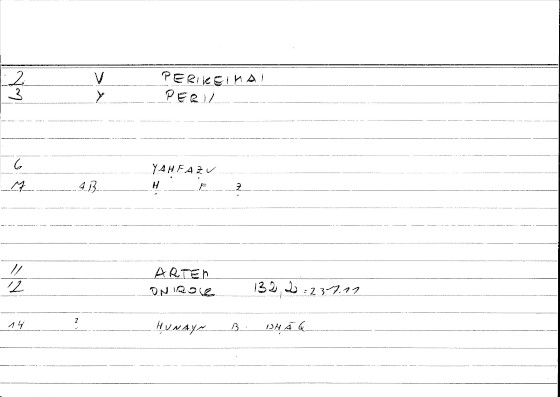 2 V PERIKEIHAI
3 Y PERI/
6 YAḤFAẒU
17 AB Ḥ F Ẓ
11 ARTEM
12 ONIROCR 132,2 = 231.11
14 ? ḤUNAYN B. ISḤĀQ